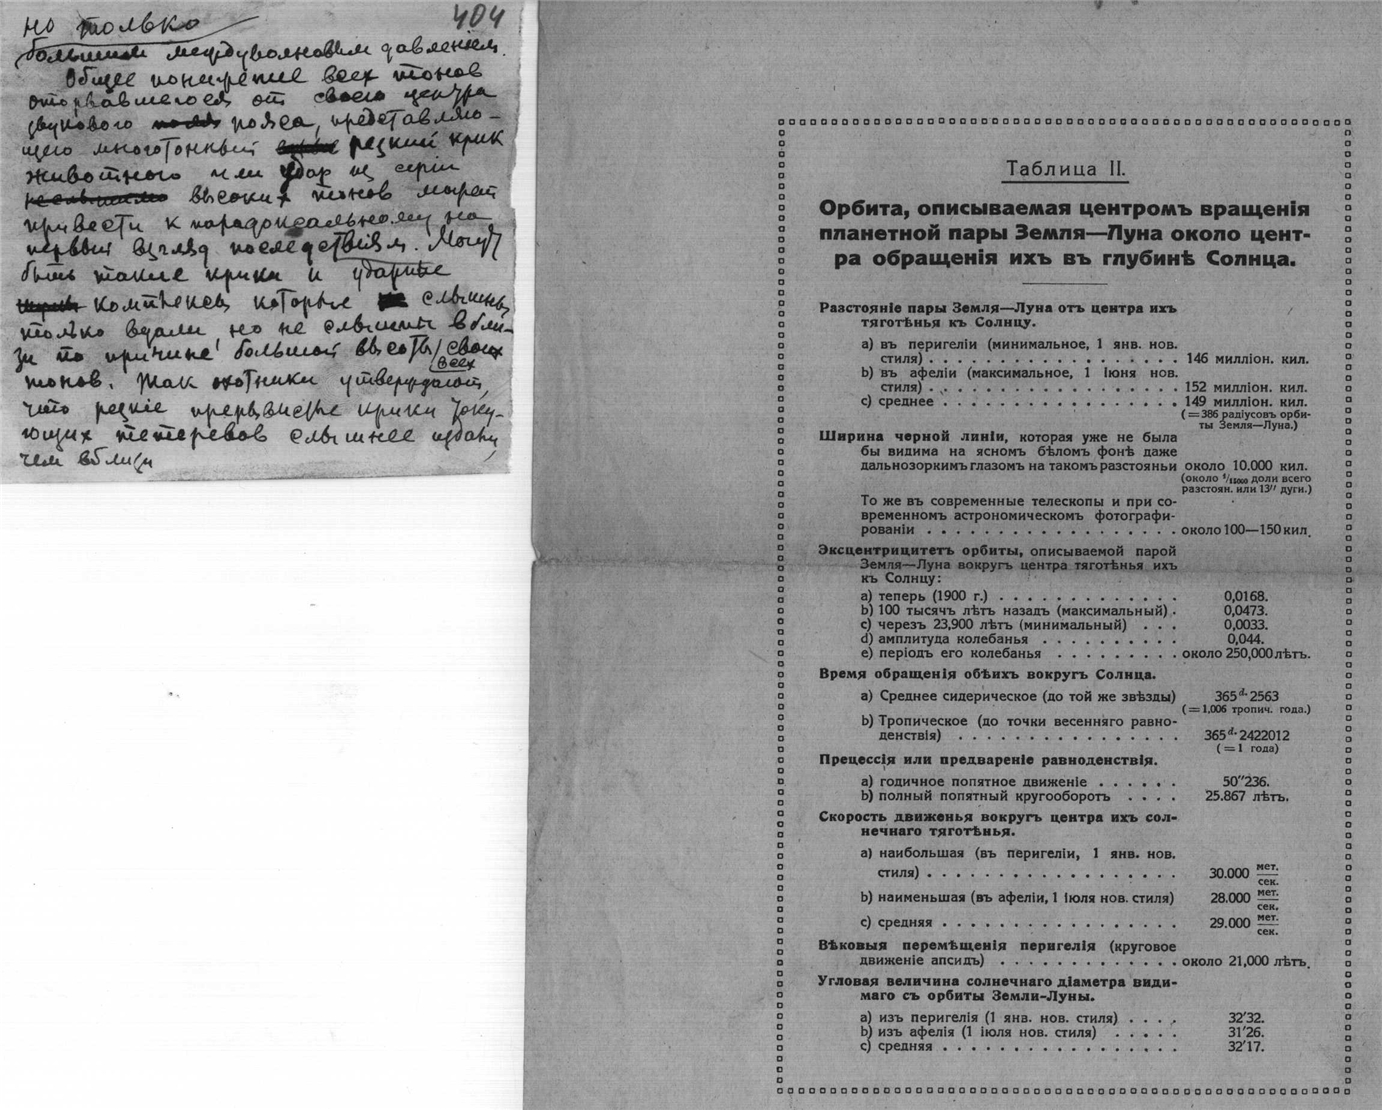 404
но только
большим междуволновым давленіем.
Общее понижение всех тонов
оторвавшегося от своего центра
звукового пояса, представляю-
щего многотонный резкий крик
животного или удар из серіи
высоких тонов может
привести к парадоксальному на
первый взгляд последствіям. Могут
быть такие крики и ударные
комплексы которые слышны
только вдали но не слышны вбли-
зи по причине большой высоты своих
всех
тонов. Так охотники утверждают,
что резкіе прерывистые крики току-
ющих тетеревов слышнее издали,
чем вблизи
Таблица II.
Орбита, описываемая центромъ вращенія
планетной пары Земля—Луна около цент-
ра обращенія ихъ въ глубинѣ Солнца.
Разстояніе пары Земля—Луна отъ центра ихъ
тяготѣнья къ Солнцу.
a) въ перигеліи (минимальное, 1 янв. нов.
стиля) . . . . . . . . . . . . . . . . . . 146 милліон. кил.
b) въ афеліи (максимальное, 1 Іюня нов.
стиля) . . . . . . . . . . . . . . . . . . 152 милліон. кил.
c) среднее . . . . . . . . . . . . . . . . 149 милліон. кил.
(=386 радіусовъ орби-
ты Земля—Луна.)
Ширина черной линіи, которая уже не была
бы видима на ясном бѣлом фонѣ даже
дальнозоркимъ глазомъ на такомъ разстояньи около 10.000 кил.
(около 1/15000 доли всего
разстоян. или 13″ дуги.)
То же въ современные телескопы и при со-
временномъ астрономическомъ фотографи-
рованіи . . . . . . . . . . . . . . . . . . около 100—150 кил.
Эксцентрицитетъ орбиты, описываемой парой
Земля—Луна вокругъ центра тяготѣнья ихъ
къ Солнцу:
a) теперь (1900 г.) . . . . . . . . . . . . . 0,0168.
b) 100 тысячъ лѣтъ назадъ (максимальный) . 0,0473.
c) черезъ 23,900 лѣтъ (минимальный) . . . 0,0033.
d) амплитуда колебанья . . . . . . . . . . 0,044.
e) періодъ его колебанья . . . . . . . . . около 250,000 лѣтъ.
Время обращенія обѣихъ вокругъ Солнца.
a) Среднее сидерическое (до той же звѣзды) 365d.2563
(=1,006 тропич. года.)
b) Тропическое (до точки весенняго равно-
денствія) . . . . . . . . . . . . . . . 365d.2422012
(=1 года)
Прецессія или предвареніе равноденствія.
a) годичное попятное движеніе . . . . . . 50″236.
b) полный попятный кругооборотъ . . . . 25.867 лѣтъ.
Скорость движенья вокругъ центра ихъ сол-
нечнаго тяготѣнья.
a) наибольшая (въ перигеліи, 1 янв. нов.
стиля) . . . . . . . . . . . . . . . . . . 30.000 мет./сек.
b) наименьшая (въ афеліи, 1 іюля нов. стиля) 28.000 мет./сек.
c) средняя . . . . . . . . . . . . . . . . 29.000 мет./сек.
Вѣковыя перемѣщенія перигелія (круговое
движеніе апсидъ) . . . . . . . . . . . . . около 21,000 лѣтъ.
Угловая величина солнечнаго діаметра види-
маго съ орбиты Земли-Луны.
a) изъ перигелія (1 янв. нов. стиля) . . . . 32′32.
b) изъ афелія (1 іюля нов. стиля) . . . . . 31′26.
c) средняя . . . . . . . . . . . . . . . . . 32′17.